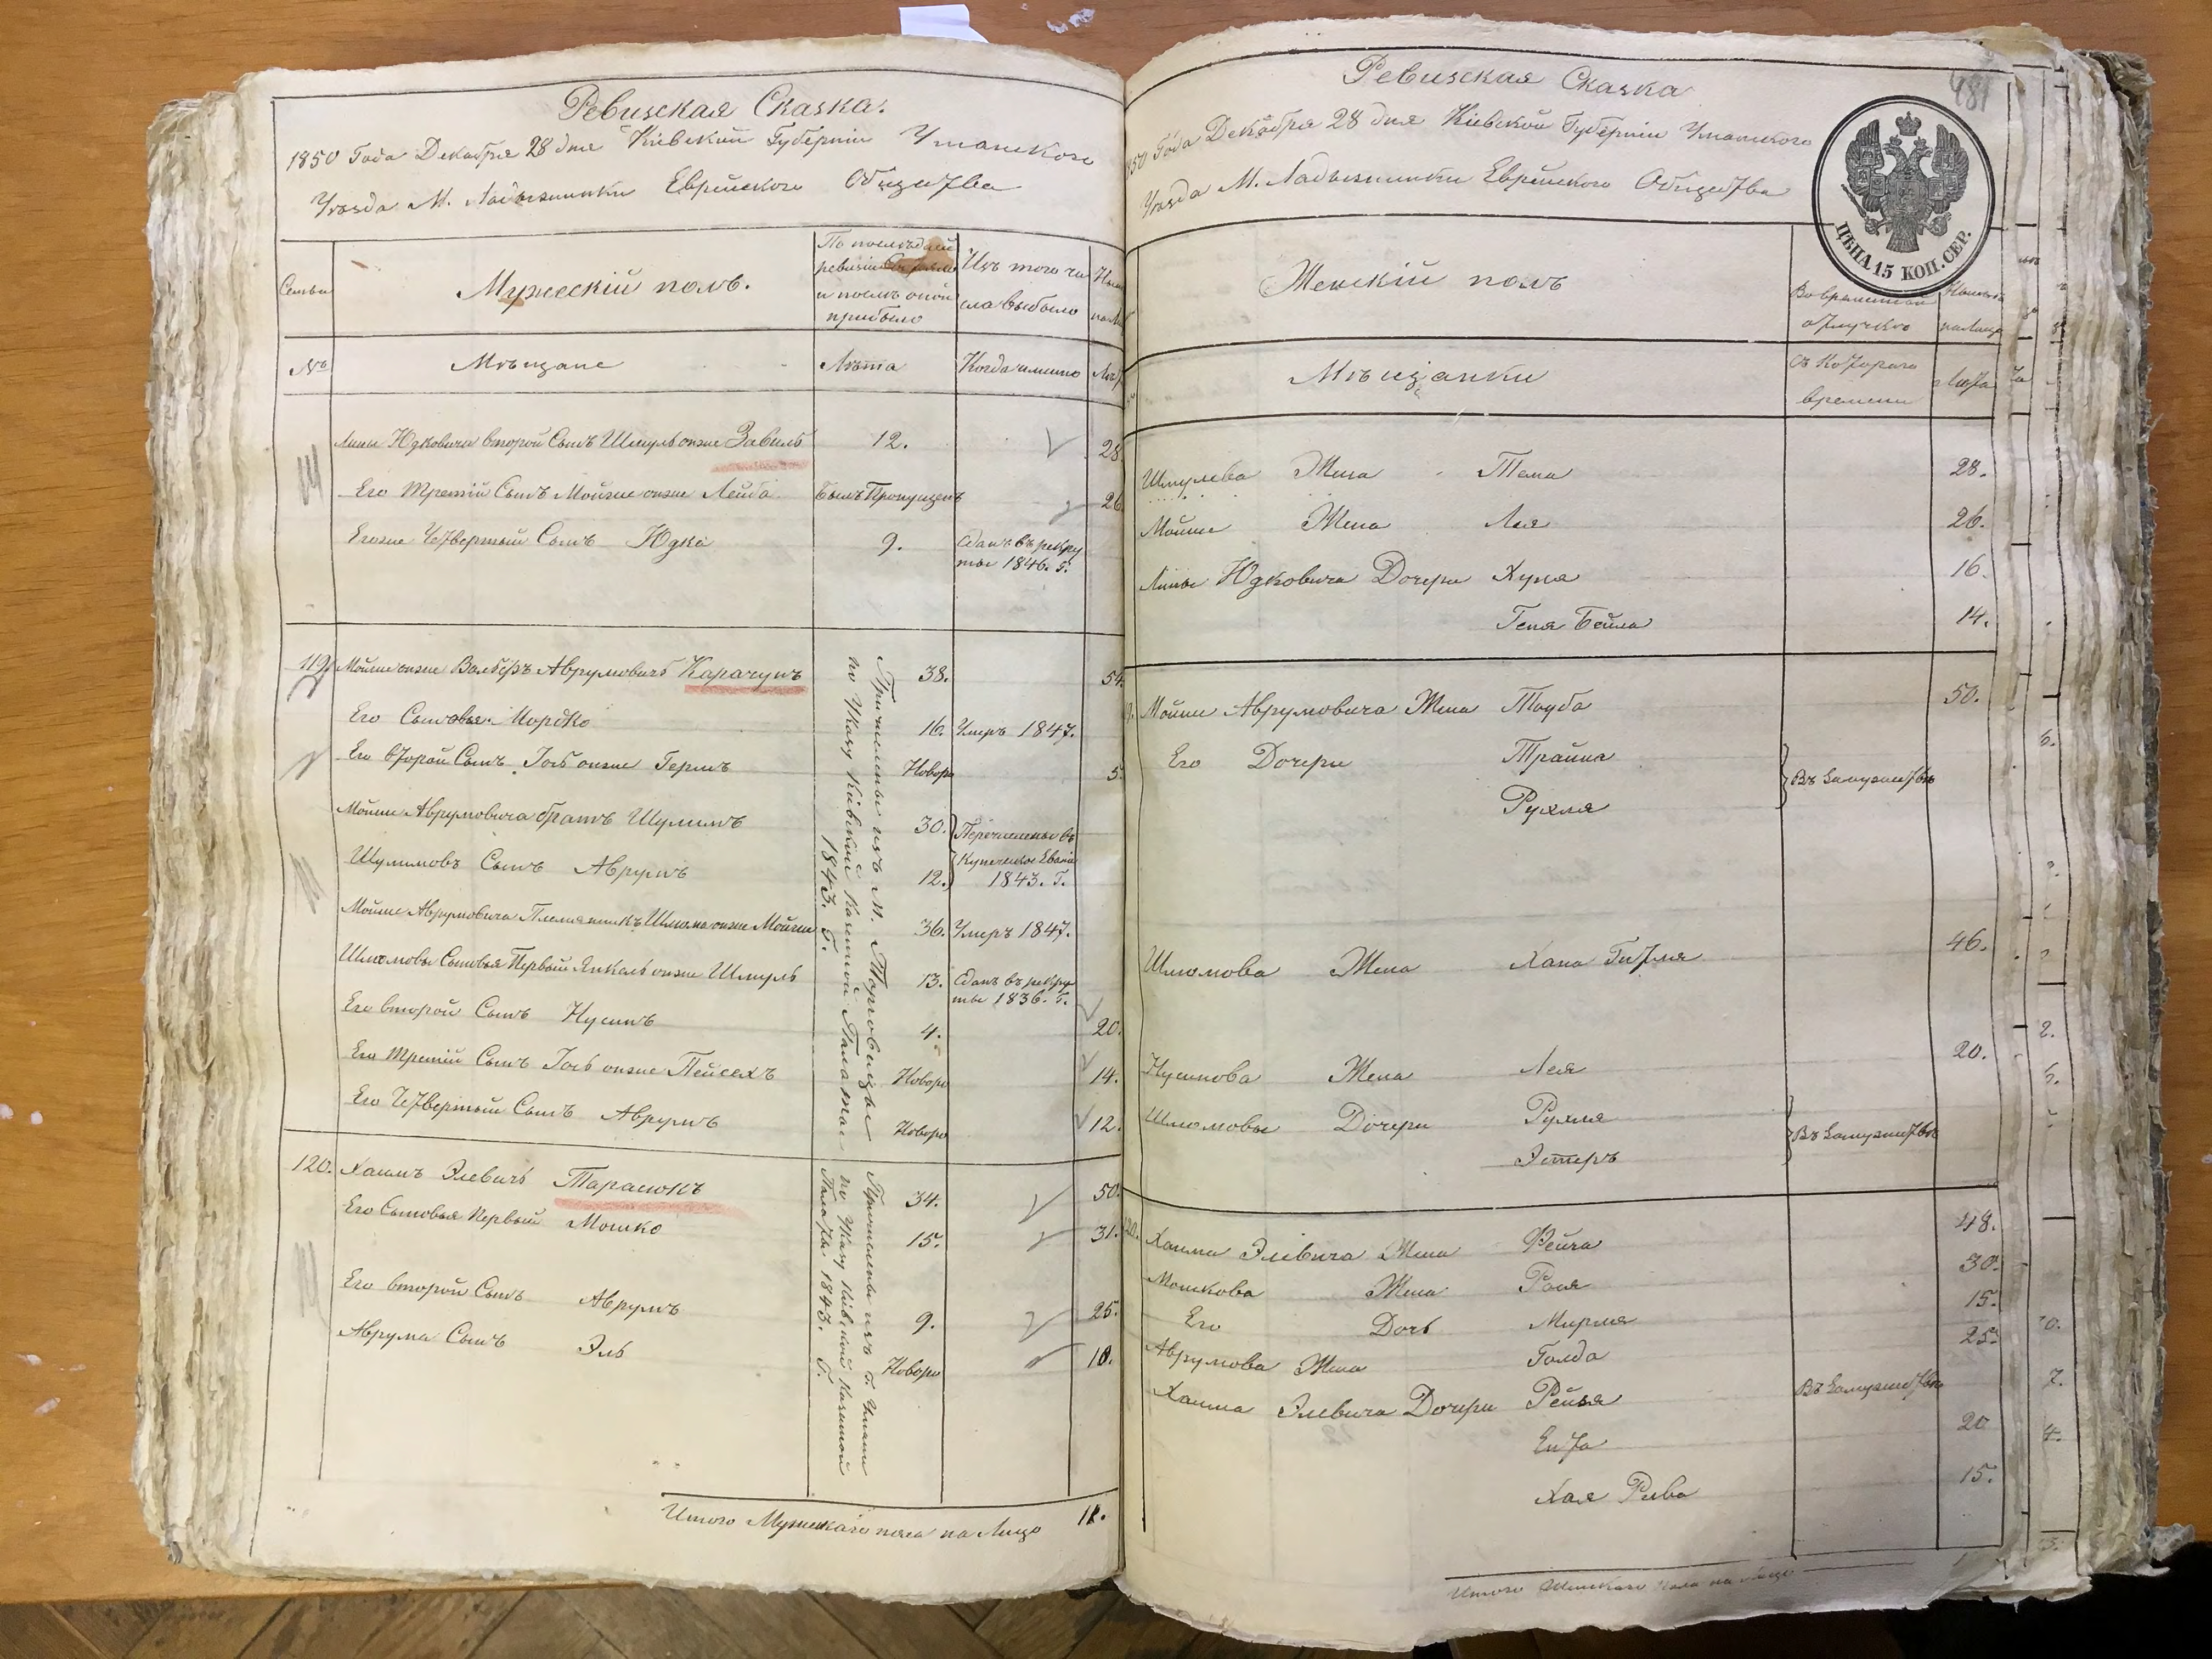 Ревизская Сказка.
1850 Года Декабря 28 дня Кіевской Губерніи Уманского
Уѣзда М. Ладыжинки Еврейского Общества
Семьи
Мужескій полъ.
По послѣдней
ревизіи
и послѣ оной
прибыло
Изъ того чи
сла выбыло
№
Мѣщане
Лѣта
Когда именно
Лѣт
Липы Юдковича второй Сынъ Шмуль онже Завиль 12. 28
Его Третій Сынъ Мойше онже Лейба Былъ Пропущенъ 26
Егоже Четвертый Сынъ Юдка 9. Сданъ въ рекру
ты 1846. г.
119. Мойше онже Вольфъ Аврумовичъ Карачунъ 38. 54.
Его Сыновья Мордко 16. Умеръ 1847.
Его второй Сынъ Іось онже Гершъ Новоро 5.
Мойши Аврумовича братъ Шулимъ 30. Перечислены въ
Купеческое Званіе
Шулимовъ Сынъ Аврумъ 12. 1843. Г.
Мойши Аврумовича Племянникъ Шлома онже Мойше 36. Умеръ 1847.
Шломовы Сыновья Первый Янкель онже Шмуль 13. Сданъ въ рекру
ты 1836. Г.
Его второй Сынъ Нусинъ 4. 20.
Его Третій Сынъ Іось онже Пейсехъ Новоро 14.
Его Четвертый Сынъ Аврумъ Новоро 12.
Причислены изъ М. Торговицы
по Указу Кіевской Казенной Палаты
1843. Г.
120. Хаимъ Элевичъ Тарасюкъ 34. 50.
Его Сыновья Первый Мошко 15. 31.
Его второй Сынъ Аврумъ 9. 25.
Аврума Сынъ Эль Новоро 10.
Причислены изъ Г. Умани
по Указу Кіевской Казенной
Палаты 1843. Г.
Итого Мужескаго пола на Лицо 11.
481
Ревизская Сказка
Года Декабря 28 дня Кіевской Губерніи Уманского
Уѣзда М. Ладыжинки Еврейского Общества
ЦѢНА 15 КОП. СЕР.
Женскій полъ
Во временной
отлучкѣ
Нынѣ
на лицо
Мѣщанки
Съ Котораго
времени
Лѣта
Шмулева Жена Тема 28.
Мойши Жена Лея 26.
Липы Юдковича Дочери Хуня 16.
Геня Бейла 14.
Мойши Аврумовича Жена Тауба 50.
Его Дочери Трайна
Въ Замужествѣ
Рухля
Шломова Жена Хана Гитля 46.
Нусинова Жена Лея 20.
Шломовы Дочери Рухля
Въ Замужествѣ
Эстеръ
120. Хаима Элевича Жена Фейга 48.
Мошкова Жена Рося 30.
Его Дочь Мирля 15.
Аврумова Жена Голда 25.
Хаима Элевича Дочери Рейзя Въ Замужествѣ
Ента 20
Хая Рива 15.
Итого Женскаго Пола на Лицо